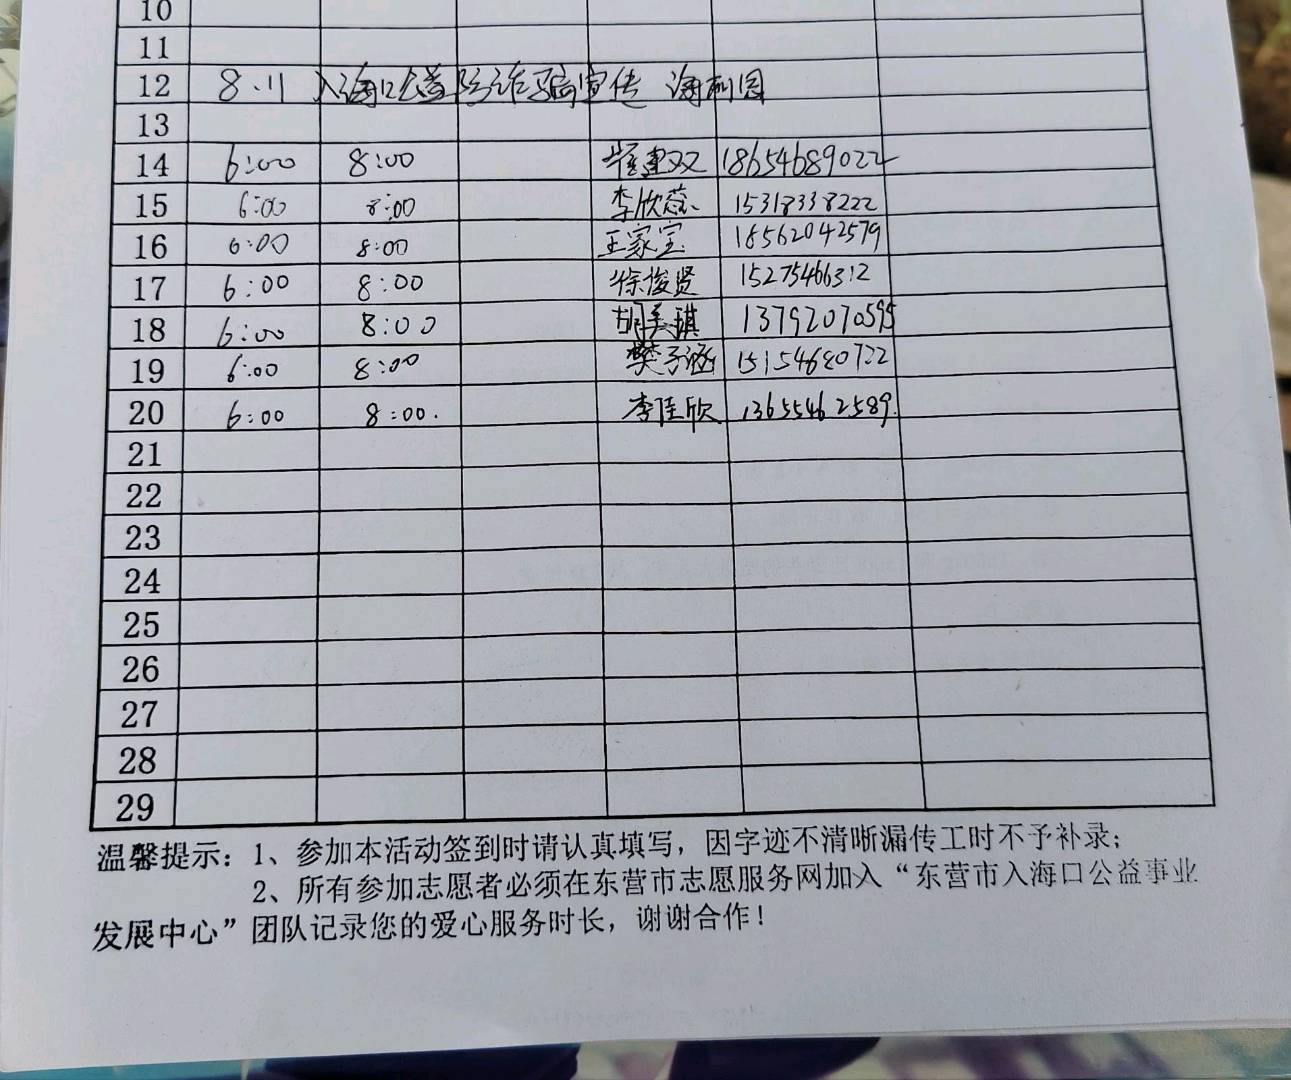 10
11
12 8.11 入海口公益防诈骗宣传 海利园
13
14 6:00 8:00 建双 18654689022
15 6:00 8:00 李欣蕊 15318338222
16 6:00 8:00 王家宝 18562042579
17 6:00 8:00 徐俊贤 15275466312
18 6:00 8:00 胡美琪 13792070595
19 6:00 8:00 樊子涵 15154680722
20 6:00 8:00. 李佳欣 13655462589.
21
22
23
24
25
26
27
28
29
温馨提示：1、参加本活动签到时请认真填写，因字迹不清晰漏传工时不予补录；
2、所有参加志愿者必须在东营市志愿服务网加入“东营市入海口公益事业
发展中心”团队记录您的爱心服务时长，谢谢合作！